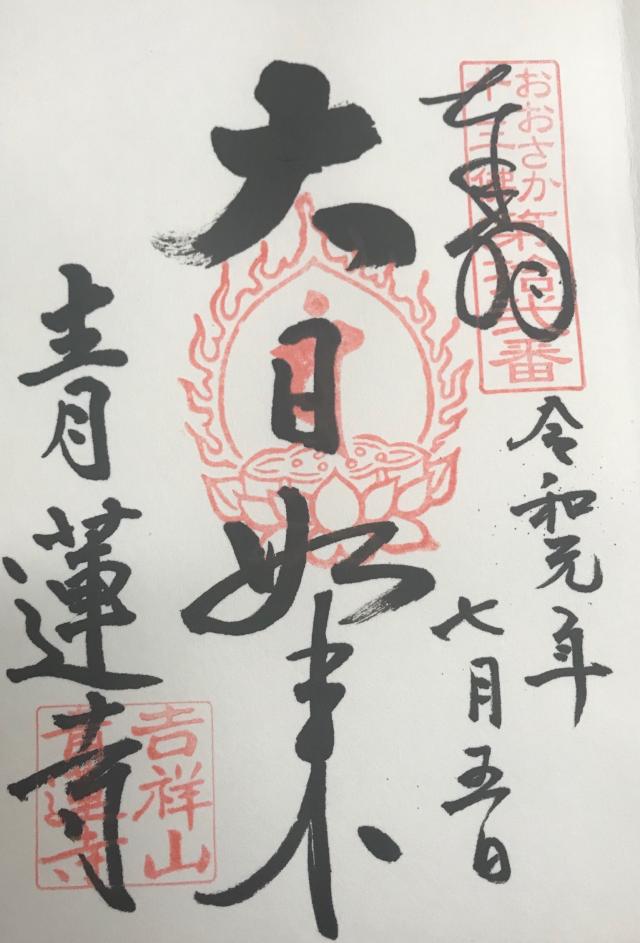 奉拝
おおさか
十三佛第拾弐番
令和元年
七月五日
大日如来
青蓮寺
吉祥山
青蓮寺